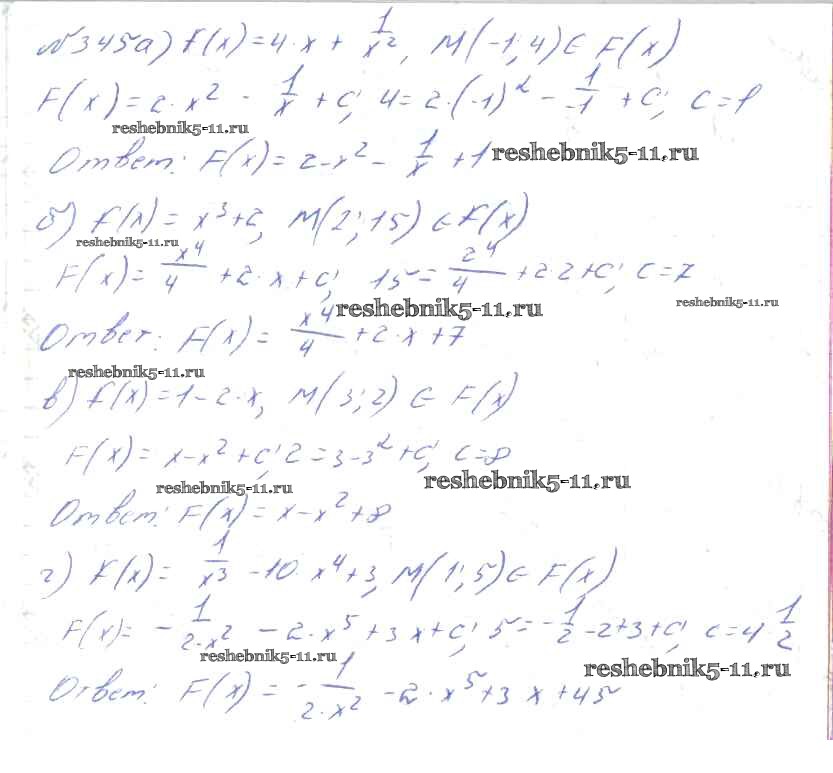 №345 а) f(x) = 4·x + 1/x², M(-1; 4) ∈ F(x)
F(x) = 2·x² - 1/x + C; 4 = 2·(-1)² - 1/-1 + C; C = 1
reshebnik5-11.ru
Ответ: F(x) = 2·x² - 1/x + 1
reshebnik5-11.ru
б) f(x) = x³ + 2, M(2; 15) ∈ F(x)
reshebnik5-11.ru
F(x) = x⁴/4 + 2·x + C; 15 = 2⁴/4 + 2·2 + C; C = 7
reshebnik5-11.ru
reshebnik5-11.ru
Ответ: F(x) = x⁴/4 + 2·x + 7
reshebnik5-11.ru
в) f(x) = 1 - 2·x, M(3; 2) ∈ F(x)
F(x) = x - x² + C; 2 = 3 - 3² + C; C = 8
reshebnik5-11.ru
reshebnik5-11.ru
Ответ: F(x) = x - x² + 8
г) f(x) = 1/x³ - 10·x⁴ + 3, M(1; 5) ∈ F(x)
F(x) = - 1/2·x² - 2·x⁵ + 3x + C; 5 = - 1/2 - 2 + 3 + C; C = 4 1/2
reshebnik5-11.ru
reshebnik5-11.ru
Ответ: F(x) = - 1/2·x² - 2·x⁵ + 3x + 45